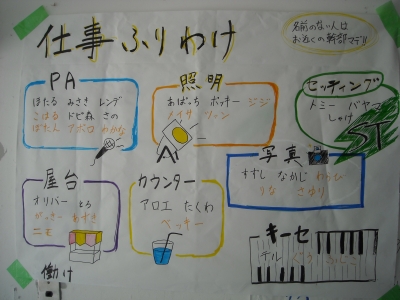 仕事ふりわけ
名前のない人は
お近くの幹部マデ!!
PA
ほたる みさき レンゲ
こはる ドビ森 さの
ぽたん アポロ わかな
照明
おぱっち ポッキー ジジ
メイサ
セッティング
トミー バヤシ
しゃけ
ST
写真
すずし なかじ わらび
りな さゆり
屋台
オリバー とら
ニモ
カウンター
アロエ たくわ
ベッキー
キーセ
テル
働け